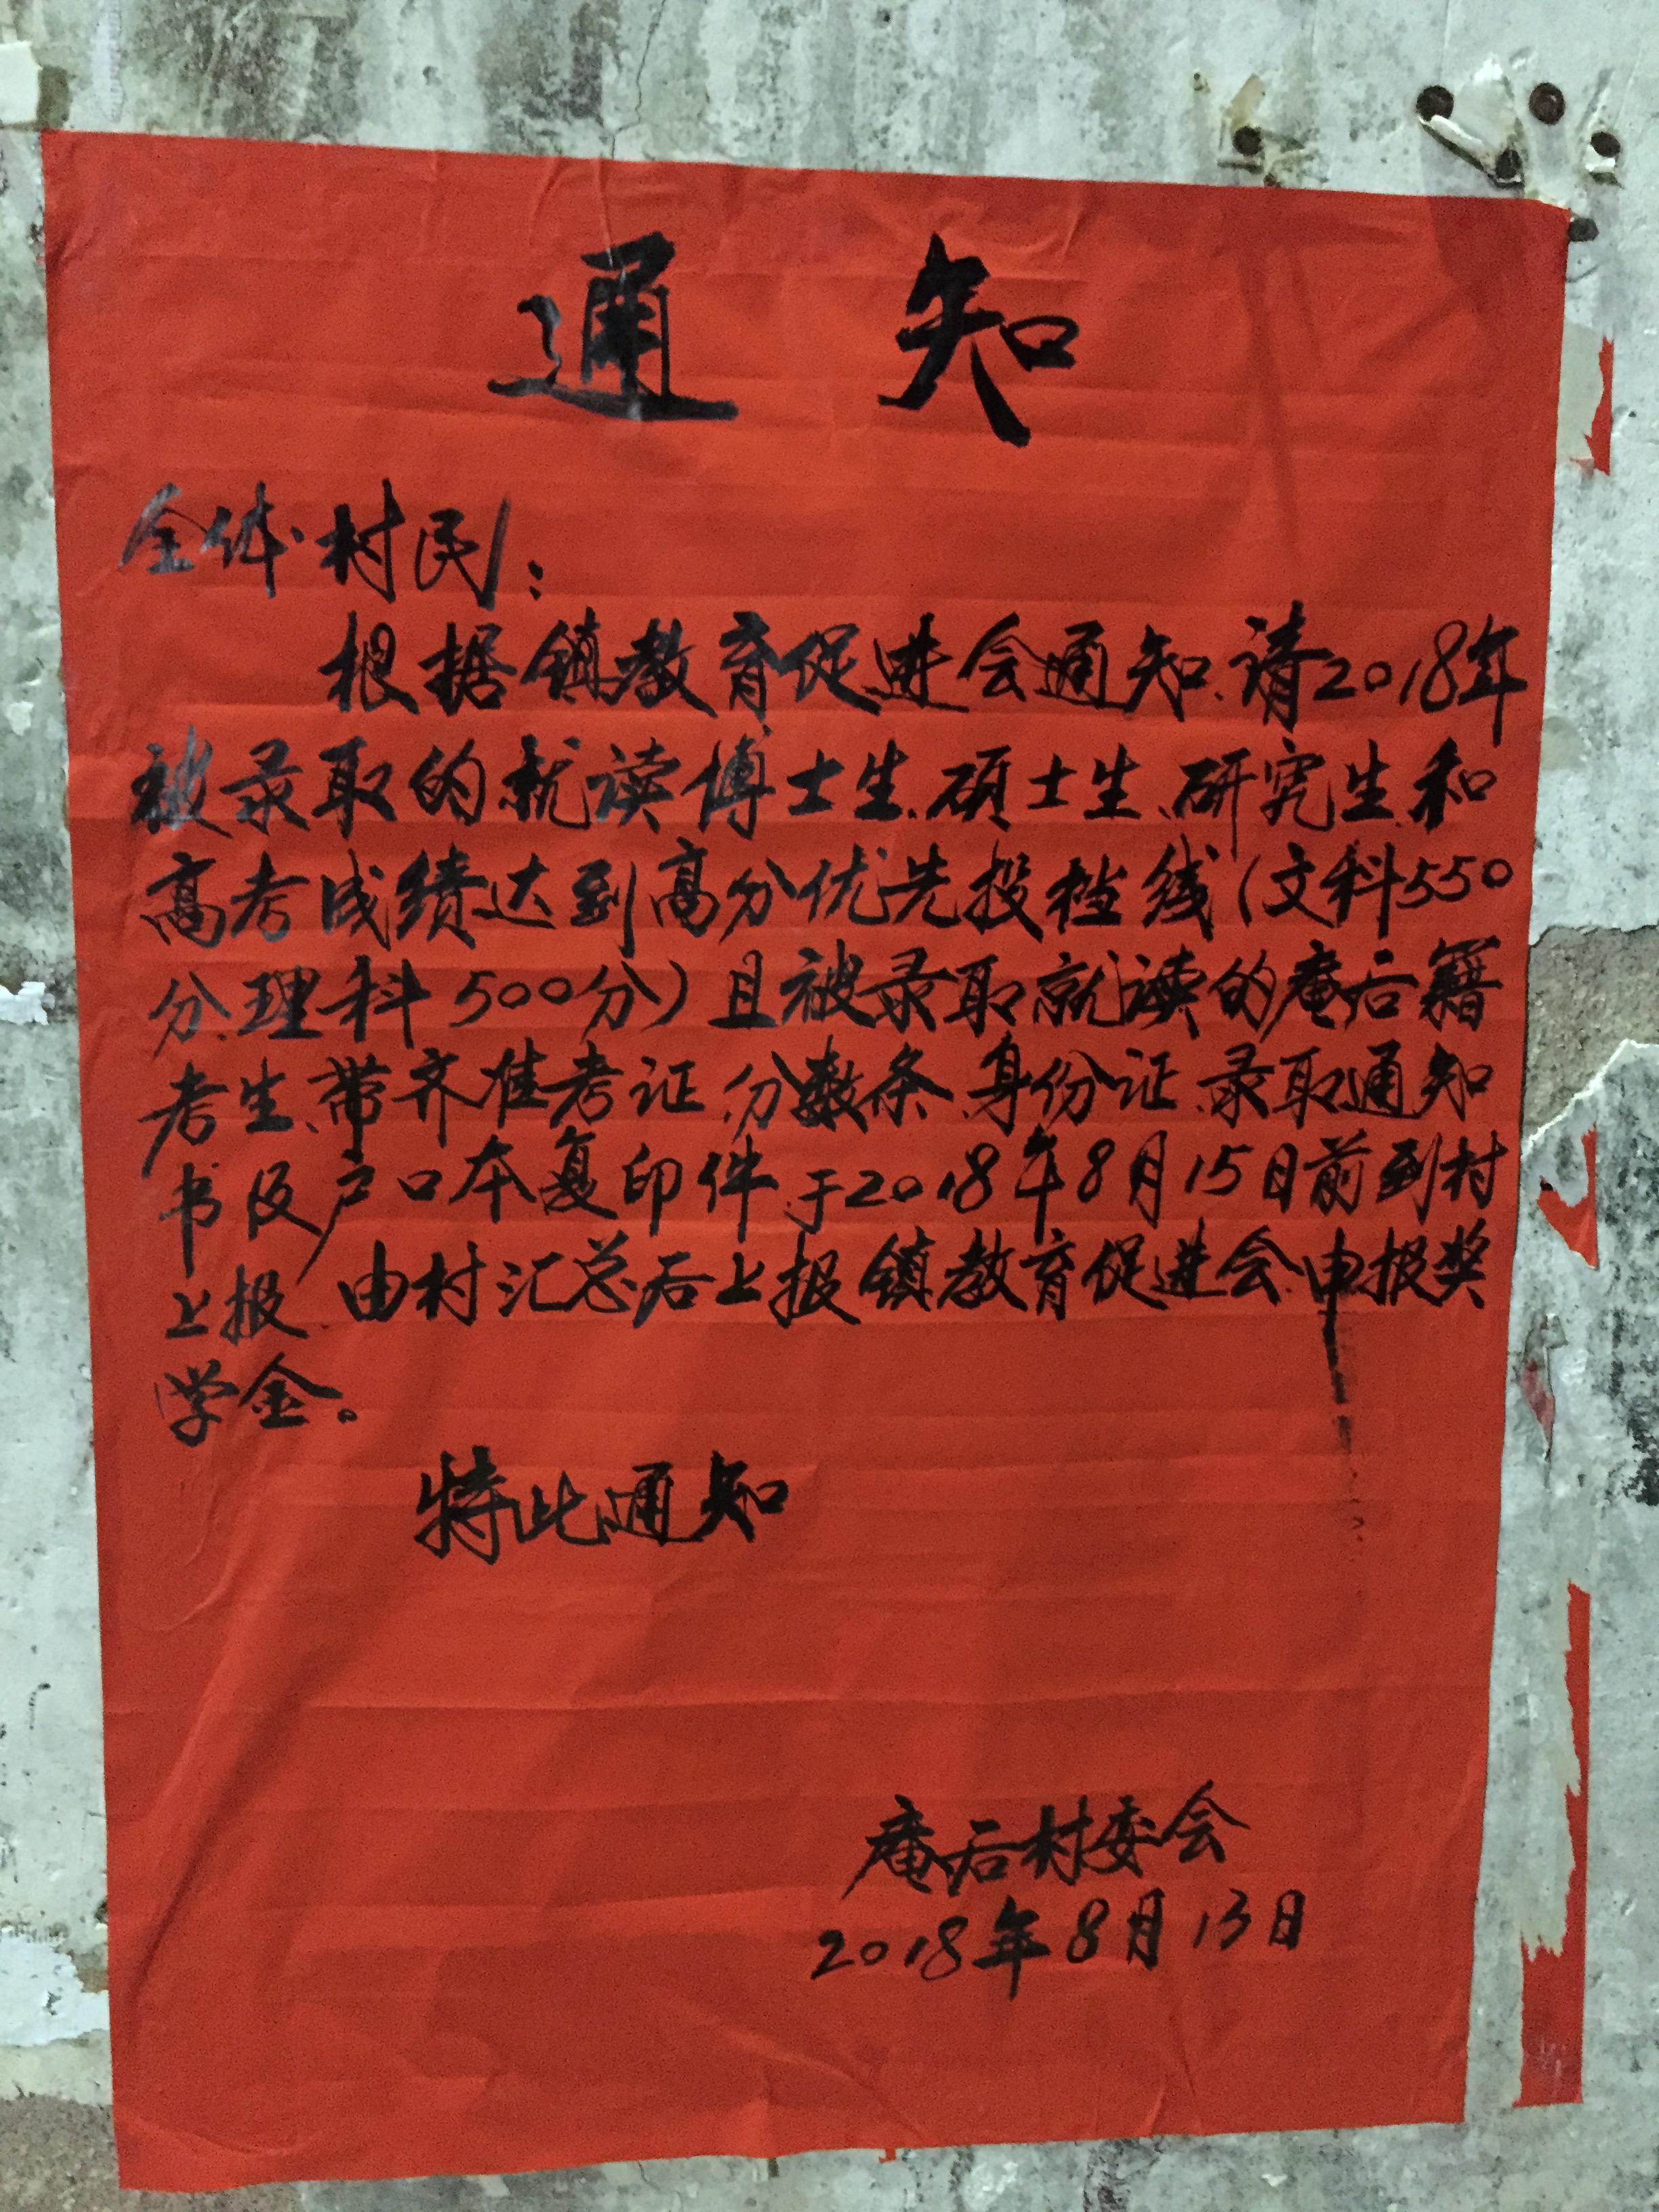 通知
全体村民：
根据镇教育促进会通知、请2018年
被录取的就读博士生、硕士生、研究生和
高考成绩达到高分优先投档线（文科550
分、理科500分）且被录取就读的庵后籍
考生、带齐准考证、分数条、身份证、录取通知
书及户口本复印件、于2018年8月15日前到村
上报、由村汇总后上报镇教育促进会、申报奖
学金。
特此通知
庵后村委会
2018年8月13日